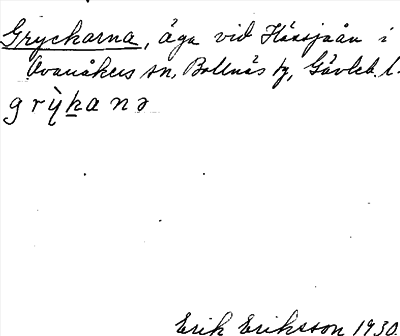 Gryckarna, äga vid Hässjaån i
Ovanåkers sn, Bollnäs tg, Gävleb. l.
grỳkanə
Erik Eriksson 1930.